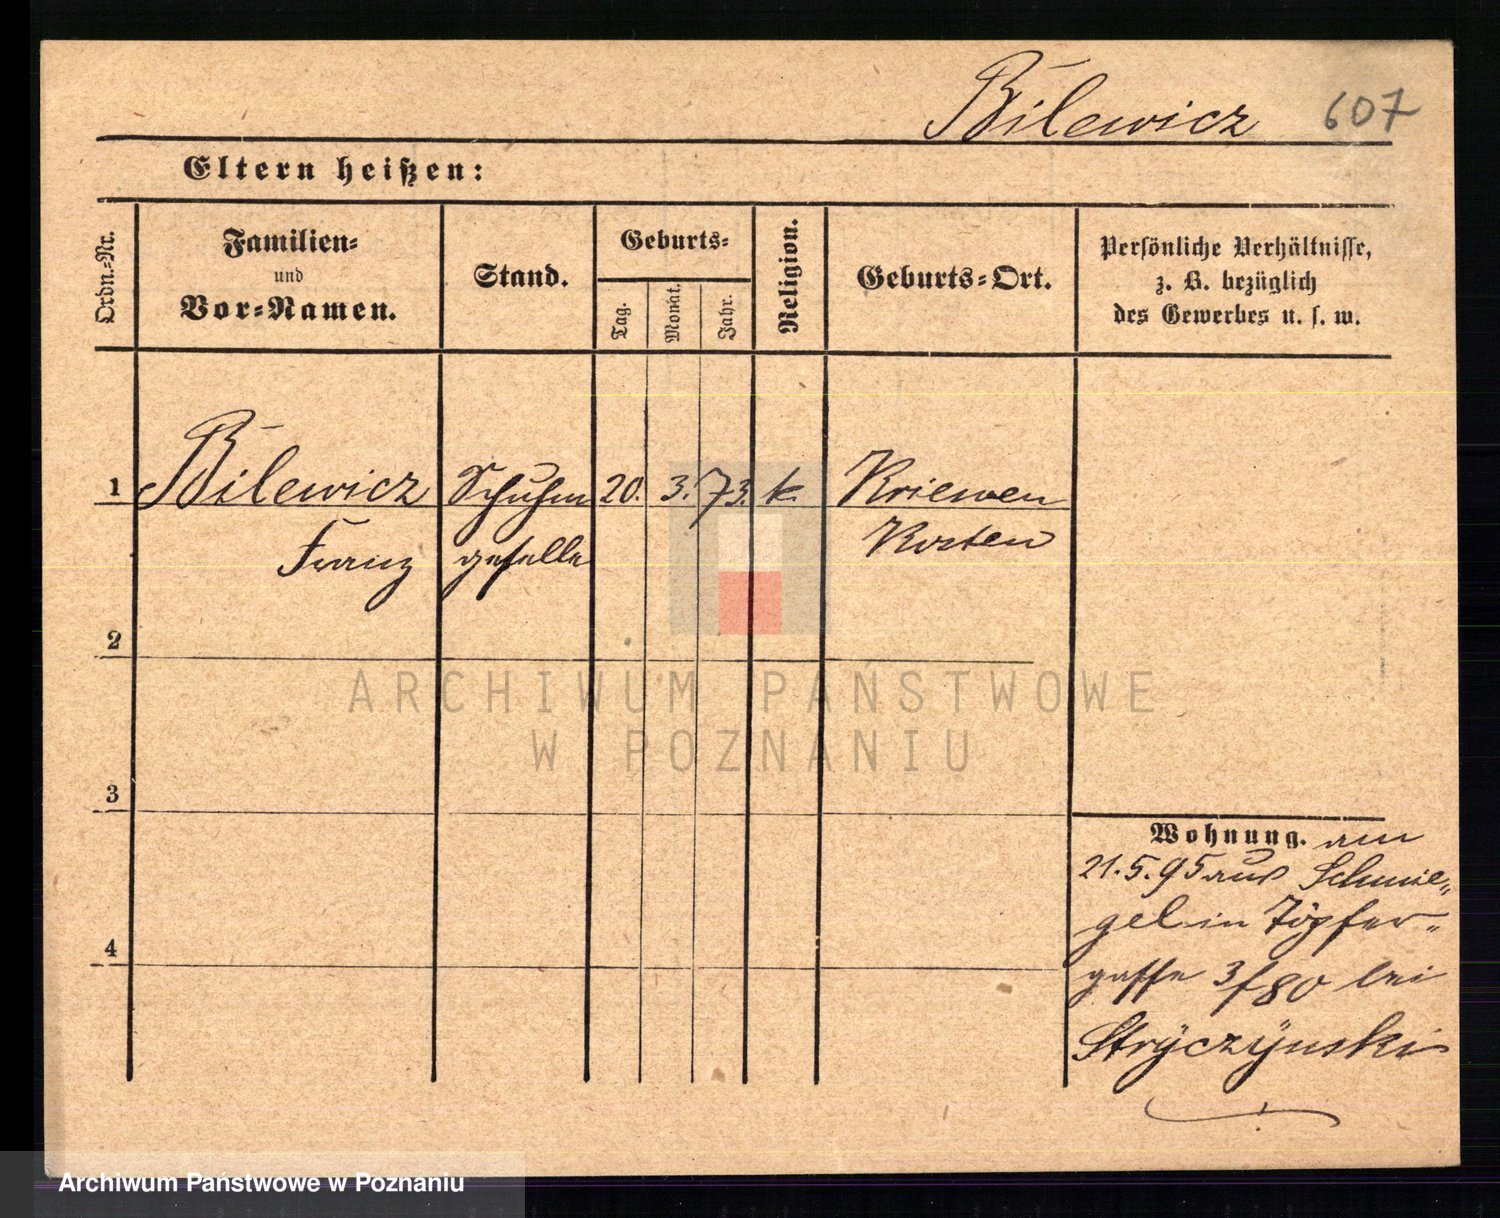 Bilewicz 607
Eltern heißen:
Ordn.-Nr.
Familien-
und
Vor-Namen.
Stand.
Geburts-
Tag.
Monat.
Jahr.
Religion.
Geburts-Ort.
Persönliche Verhältnisse,
z. B. bezüglich
des Gewerbes u. s. w.
1 Bilewicz Schuhm 20. 3. 73. k. Kriewen
Franz geselle Kosten
2
3
4
Wohnung. am
21.5.95 aus Schmie-
gel in Töpfer-
gasse 3/80 bei
Stryczynski
ARCHIWUM PAŃSTWOWE
W POZNANIU
Archiwum Państwowe w Poznaniu